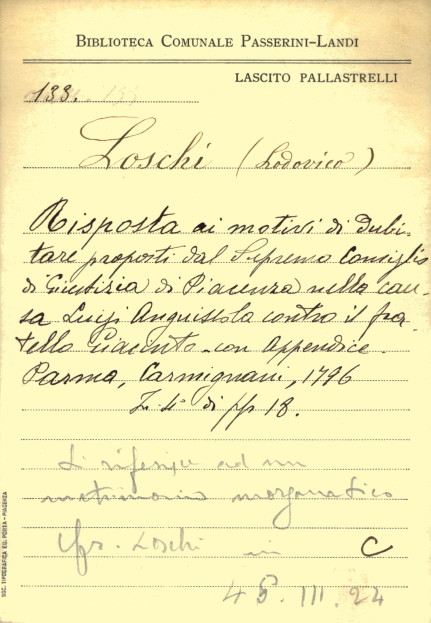 BIBLIOTECA COMUNALE PASSERINI-LANDI
LASCITO PALLASTRELLI
133.
Loschi (Lodovico)
Risposta ai motivi di dubi-
tare proposti dal Supremo Consiglio
di Giustizia di Piacenza nella cau-
sa Luigi Anguissola contro il fra-
tello Giacinto con Appendice.
Parma, Carmignani, 1796
In 4° di pp 18.
Si riferisce ad un
matrimonio morganatico
Cfr. Loschi in C
4 III. 24
SOC. TIPOGRAFICA ED. PORTA - PIACENZA